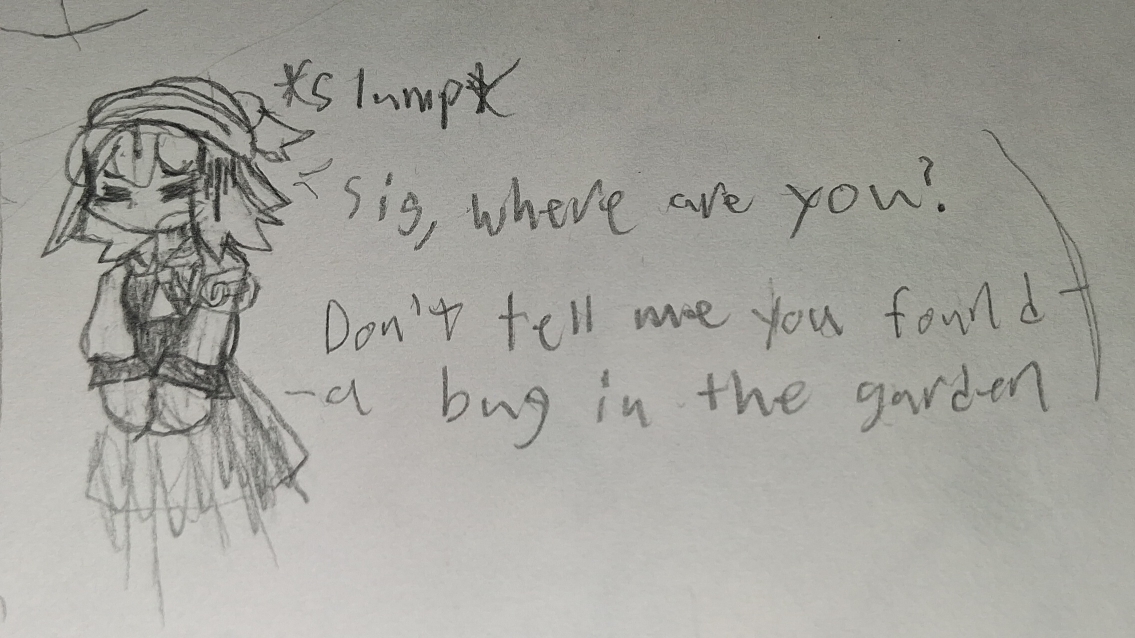 *slump*
Sig, where are you?
Don't tell me you found
a bug in the garden